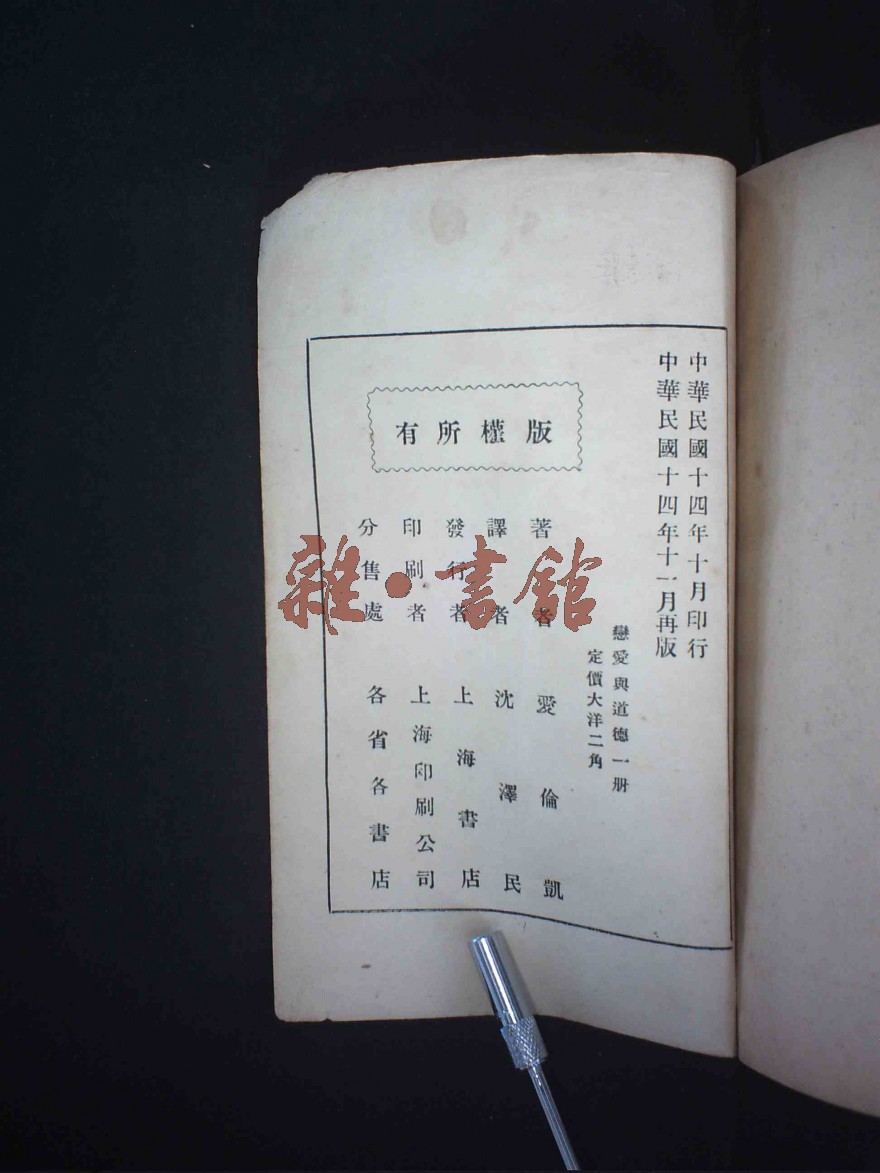 中華民國十四年十月印行
中華民國十四年十一月再版
戀愛與道德一册
定價大洋二角
版權所有
著者 愛倫凱
譯者 沈澤民
發行者 上海書店
印刷者 上海印刷公司
分售處 各省各書店
雜·書館